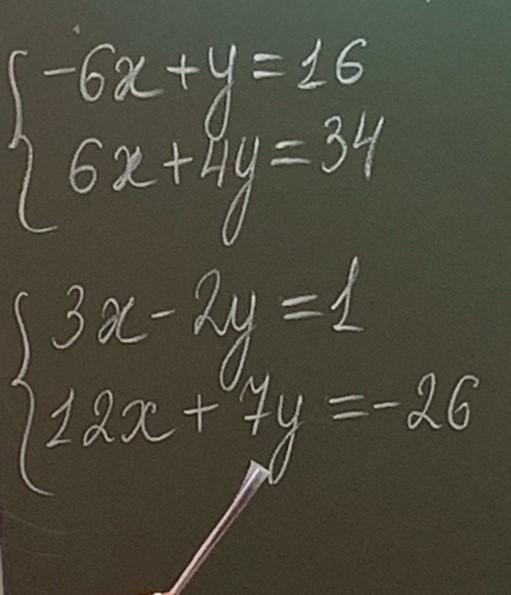 -6x+y=16
6x+4y=34
3x-2y=1
12x+7y=-26